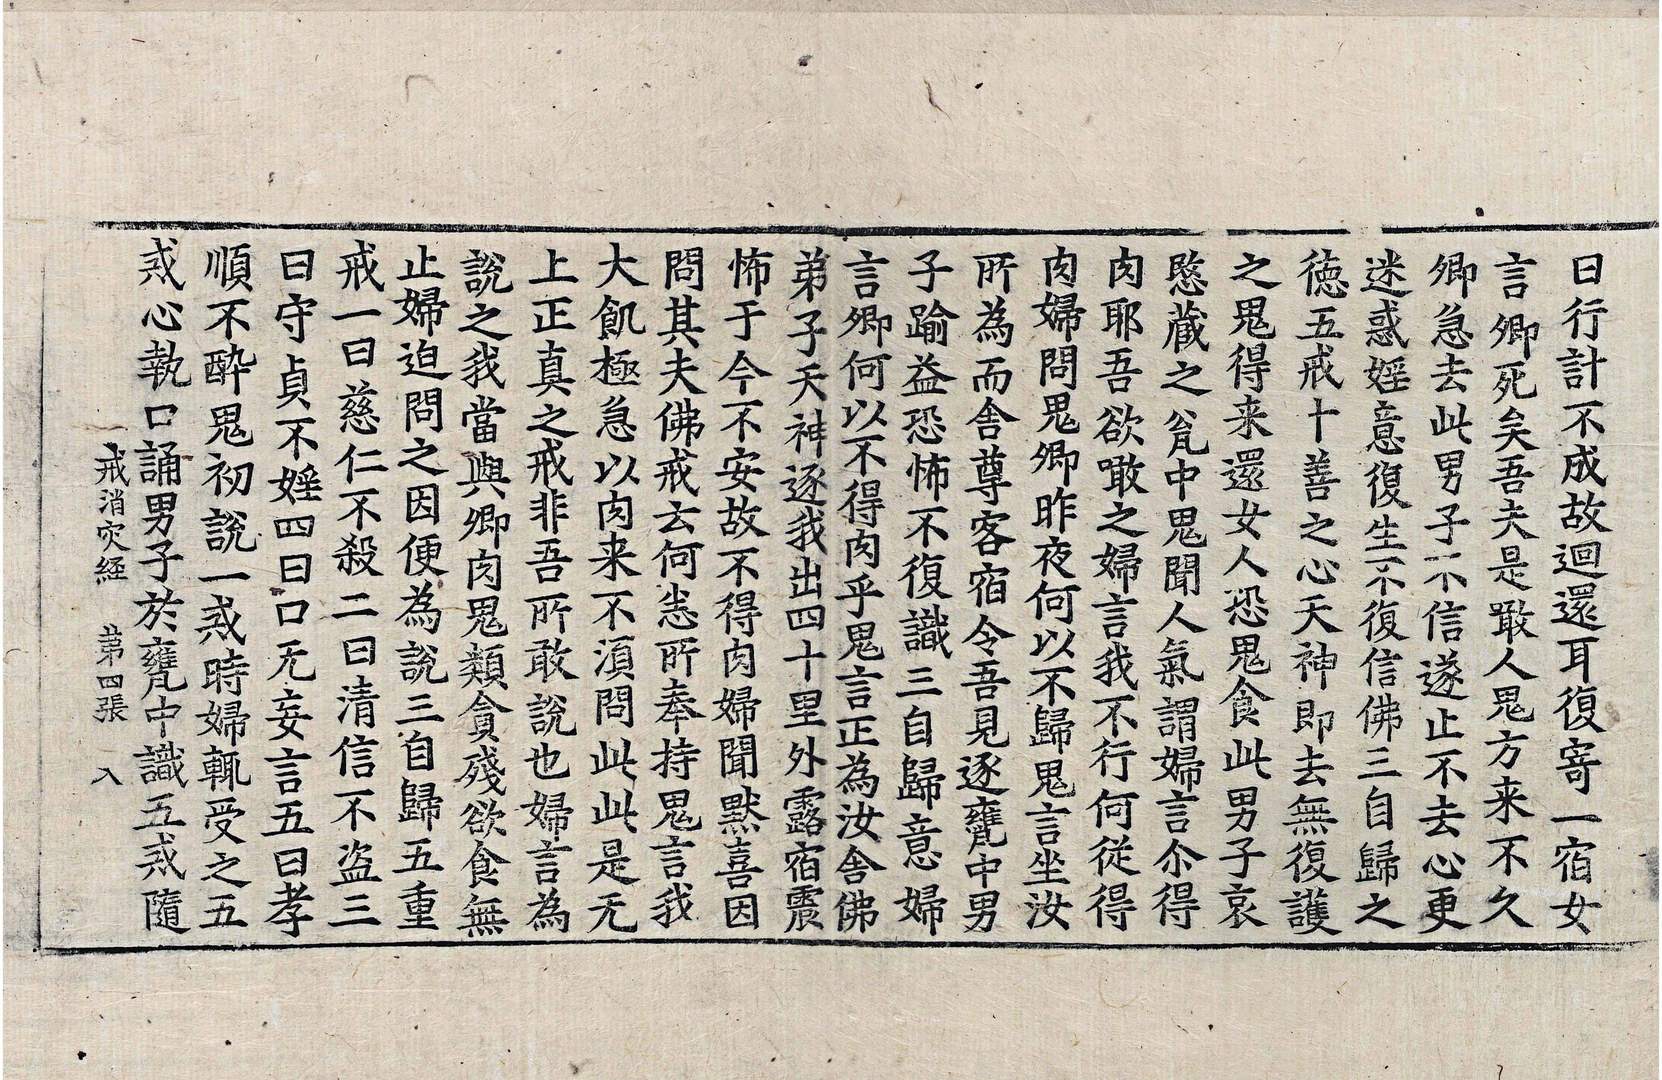 曰行計不成故迴還耳復寄一宿女
言卿死矣吾夫是噉人鬼方来不久
卿急去此男子不信遂止不去心更
迷惑婬意復生不復信佛三自歸之
徳五戒十善之心天神即去無復護
之鬼得来還女人恐鬼食此男子哀
愍蔵之瓮中鬼聞人氣謂婦言尒得
肉耶吾欲噉之婦言我不行何従得
肉婦問鬼卿昨夜何以不歸鬼言坐汝
所為而舍尊客宿令吾見逐甕中男
子踰益恐怖不復識三自歸意婦
言卿何以不得肉乎鬼言正為汝舍佛
弟子天神逐我出四十里外露宿震
怖于今不安故不得肉婦聞黙喜因
問其夫佛戒云何悉所奉持鬼言我
大飢極急以肉来不湏問此此是无
上正真之戒非吾所敢說也婦言為
說之我當與卿肉鬼類貪殘欲食無
止婦迫問之因便為說三自歸五重
戒一曰慈仁不殺二曰清信不盗三
曰守貞不婬四曰口无妄言五曰孝
順不酔鬼初說一戒時婦輒受之五
戒心執口誦男子於甕中識五戒隨
戒消灾經 第四張 入